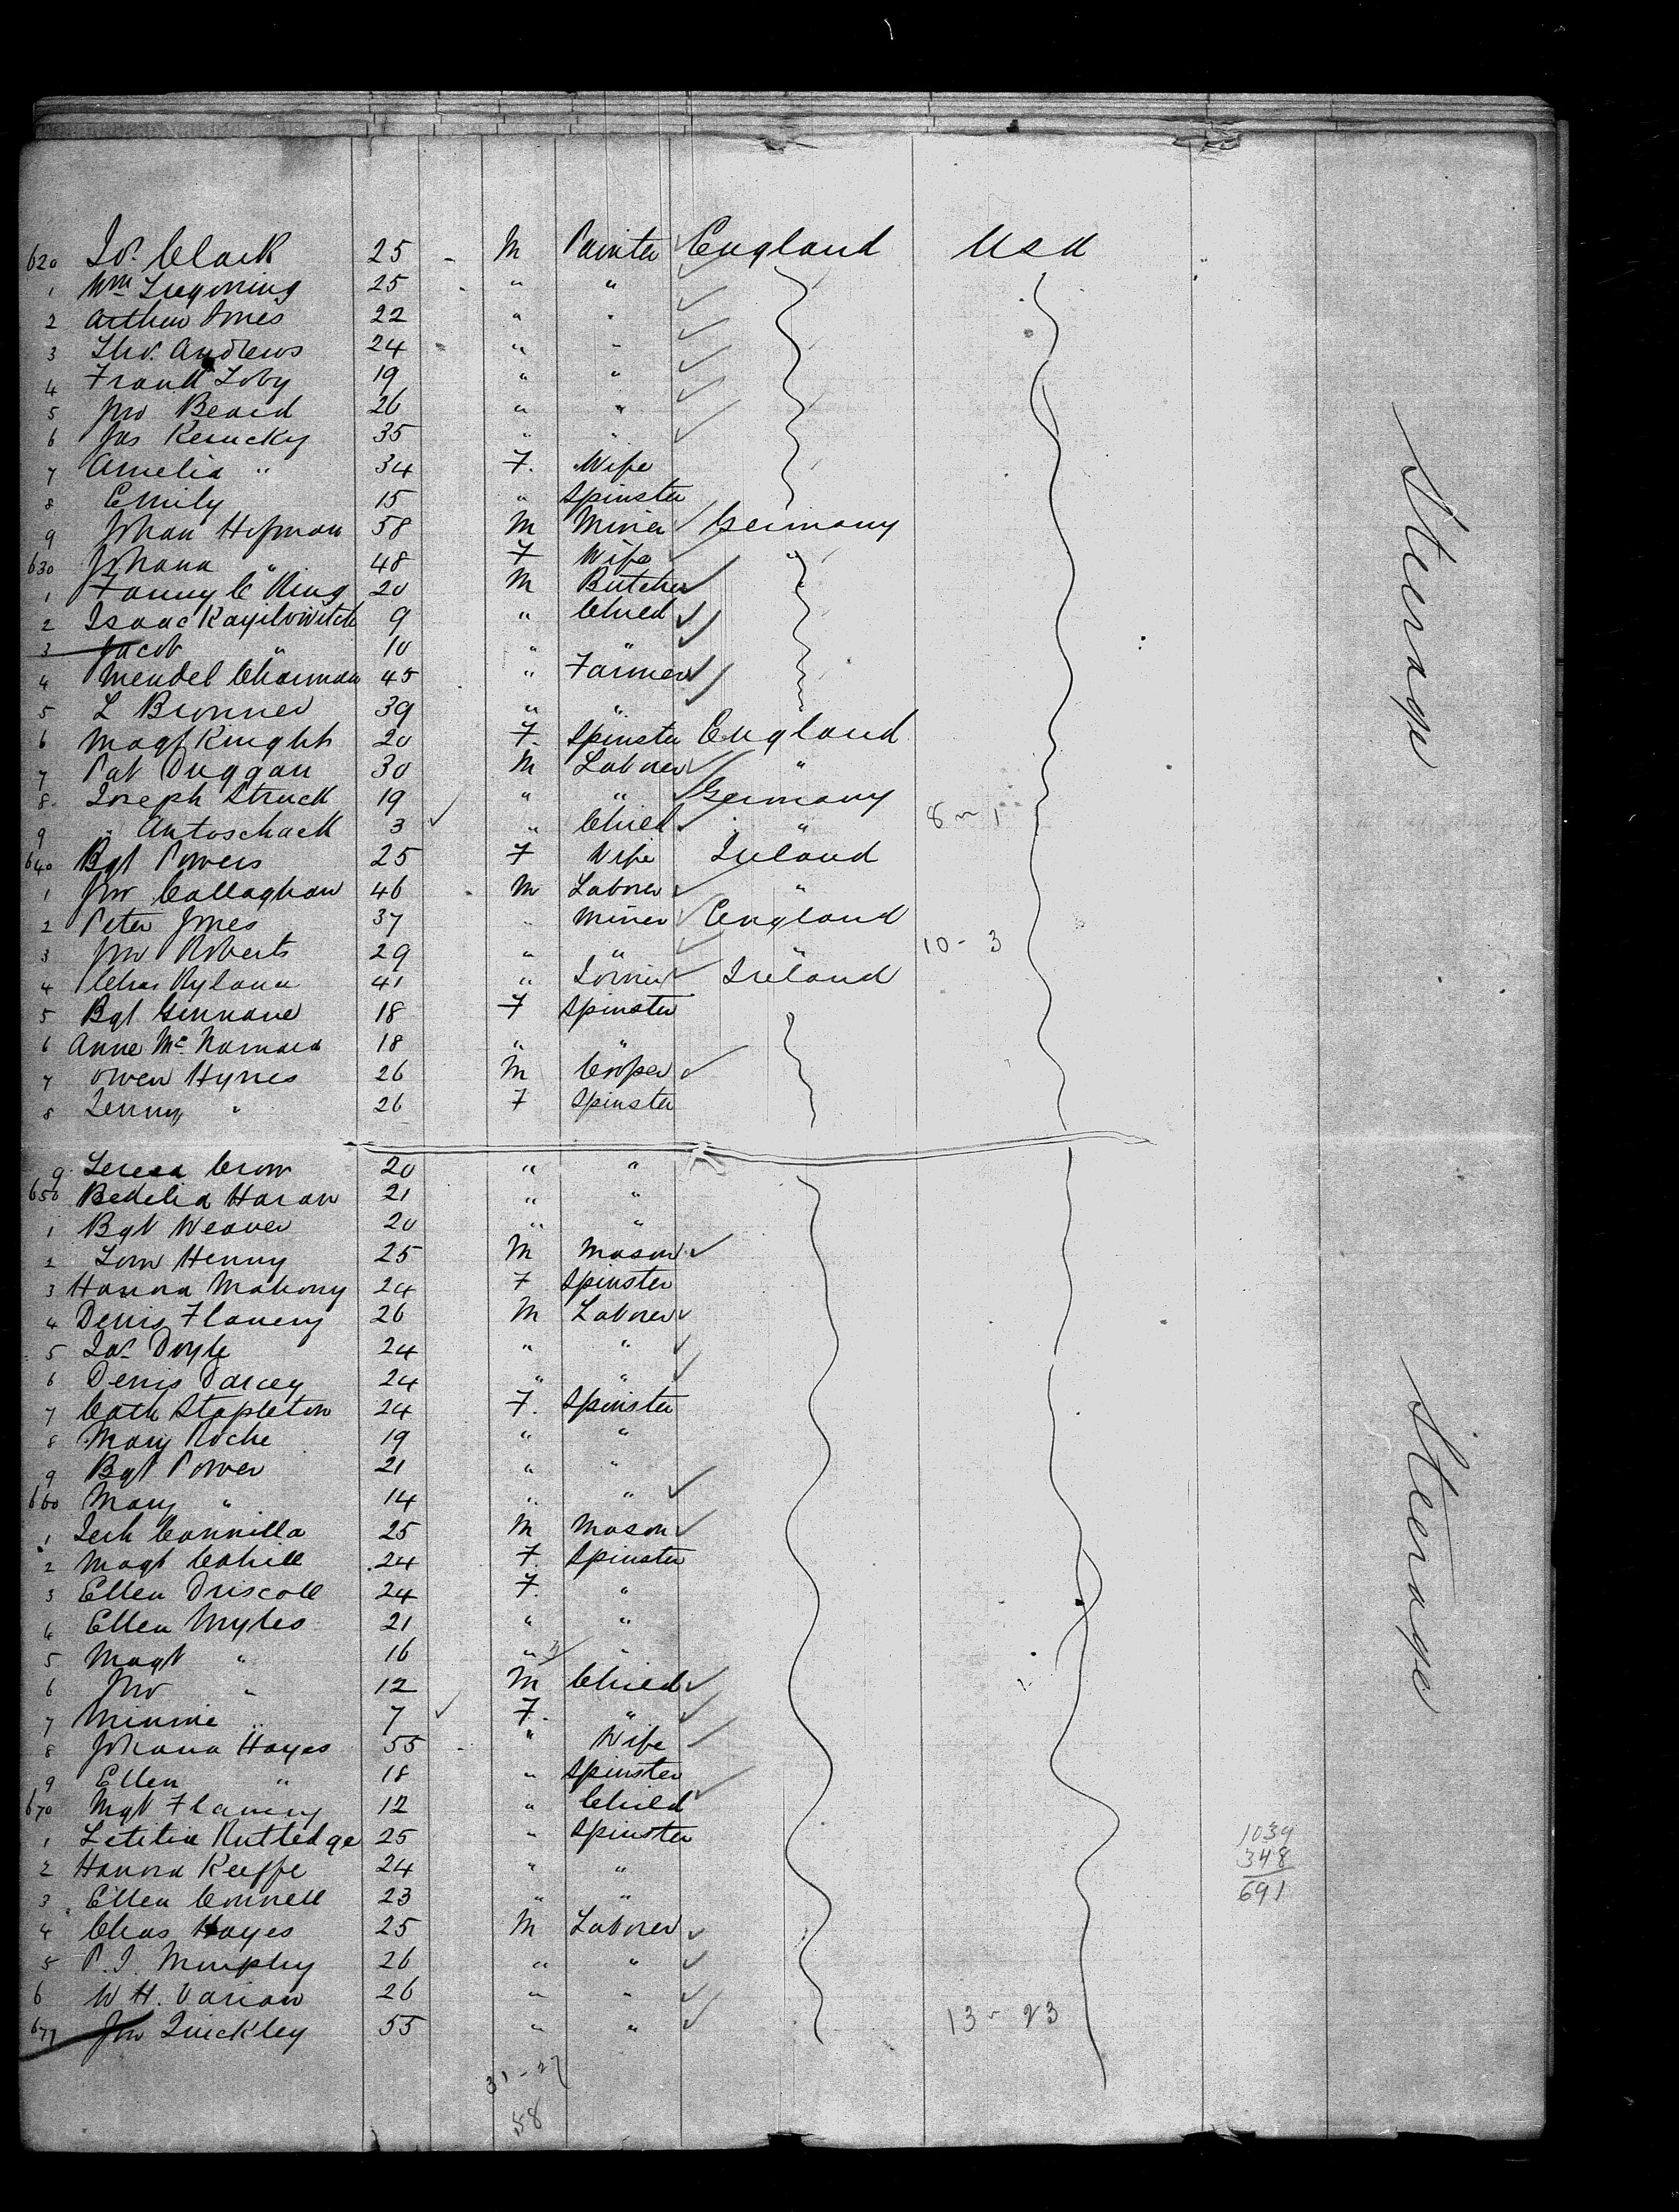 620 Jos. Clark 25 M Painter England USA
1 Wm Tregoning 25 " "
2 Arthur Jones 22 " "
3 Thos. Andrews 24 " "
4 Frank Toby 19 " "
5 Jno Beard 26 " "
6 Jas Kerucky 35 " "
7 Amelia " 34 F. Wife
8 Emily 15 " Spinster
9 Johan Hofman 58 M Miner Germany
630 Johana " 48 F Wife "
1 Fanny C King 20 M Butcher
2 Isaac Kayilowitch 9 " Child
3 Jacob " 10 " "
4 Mendel Charman 45 " Farmer
5 L Bronner 39 " "
6 Magt Knight 20 F. Spinster England
7 Pat Duggan 30 M Laborer "
8 Joseph Struck 19 " " Germany
9 " Antoschack 3 " Child "
8 - 1
640 Bgt Powers 25 F Wife Ireland
1 Jno Callaghan 46 M Laborer "
2 Peter Jones 37 " Miner England
3 Jno Roberts 29 " " "
10 - 3
4 Chas Rylann 41 " Joiner Ireland
5 Bgt Ginnane 18 F Spinster
6 Anne Mc Namara 18 " "
7 Owen Hynes 26 M Cooper
8 Jenny " 26 F Spinster
9 Teresa Crow 20 " "
650 Bedelia Haran 21 " "
1 Bgt Weaver 20 " "
2 Tom Henny 25 M Mason
3 Hanora Mahony 24 F Spinster
4 Denis Flanery 26 M Laborer
5 Jas. Doyle 24 " "
6 Denis Darcey 24 " "
7 Cath Stapleton 24 F. Spinster
8 Mary Roche 19 " "
9 Bgt Power 21 " "
660 Mary " 14 " "
1 25 M Mason
2 Magt Cahill 24 F. Spinster
3 Ellen Driscoll 24 F. "
4 Ellen Myles 21 " "
5 Magt " 16 " "
6 Jno " 12 M Child
7 Minnie " 7 F. "
8 Johana Hayes 55 " Wife
9 Ellen " 18 " Spinster
670 Mgt Flanery 12 " Child
1 Letitia Rutledge 25 " Spinster
2 Hanora Keeffe 24 " "
3 Ellen Connell 23 " "
4 Chas Hayes 25 M Laborer
5 P. J. Murphy 26 " "
6 W H. Varian 26 " "
677 Jno Quickley 55 " "
13 - 23
31 - 27
58
1039
348
691
Steerage
Steerage